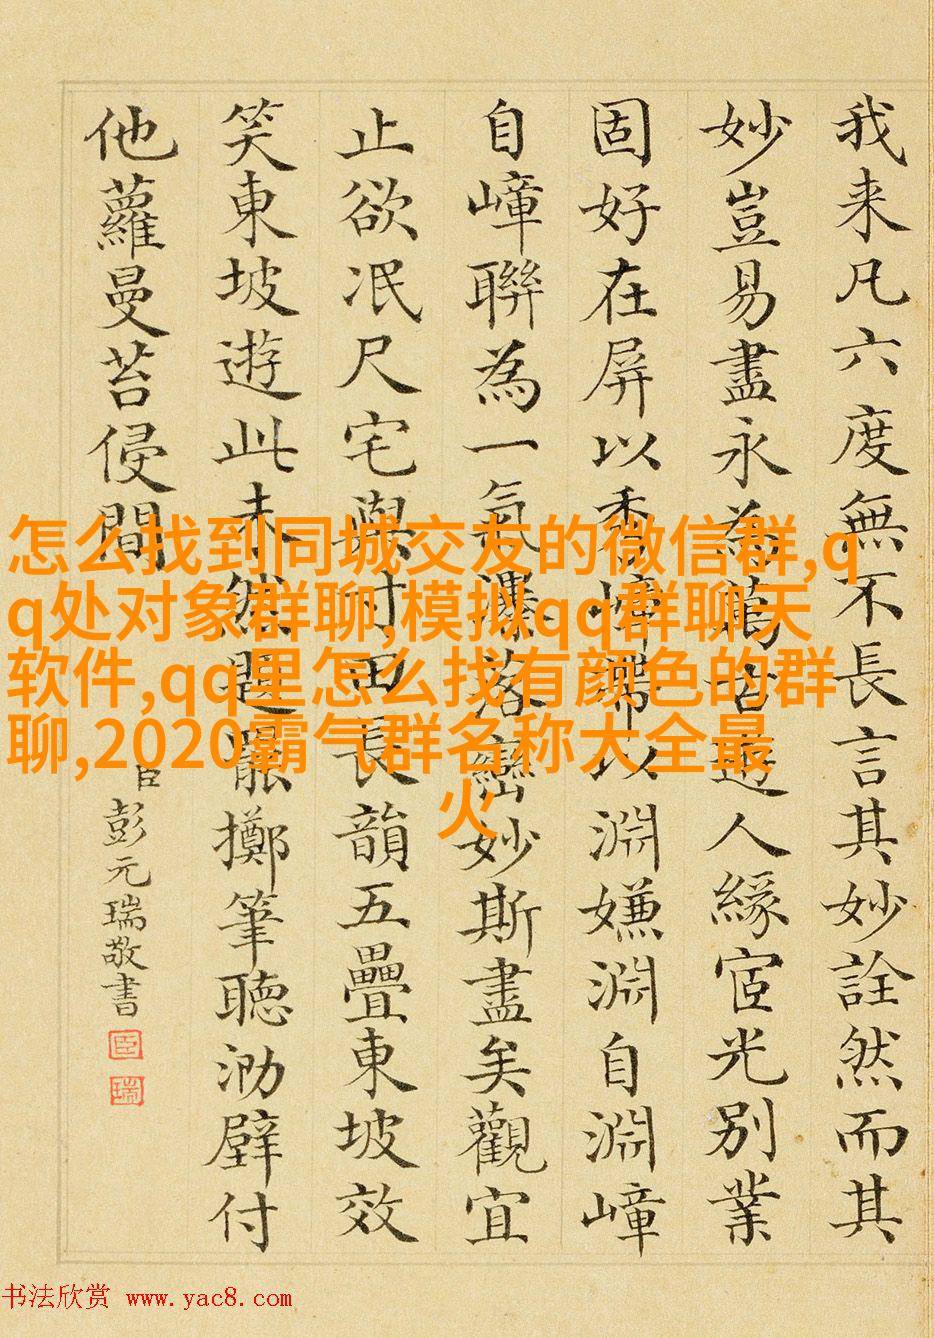 我来凡六度無不長言其妙詮然而其
妙豈易盡永為人緣宧光別業
固好在屏以香嶂以淵嫌淵自淵嶂
自嶂聯為一氣瀑落巒妙斯盡矣觀宜
止欲泯尺宅與寸田長韻五疊東坡效
笑東坡遊此未然題罷擲筆聽泐壁付
他蘿曼苔侵間
臣彭元瑞敬書
臣
瑞
怎么找到同城交友的微信群,q
q处对象群聊,模拟qq群聊天
软件,qq里怎么找有颜色的群
聊,2020霸气群名称大全最
火
书法欣赏 www.yac8.com